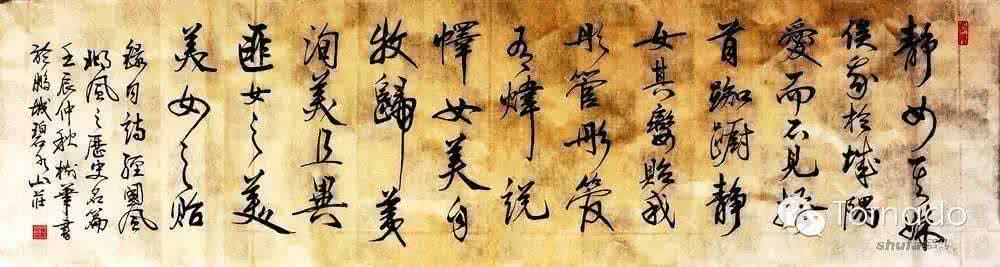 靜女其姝
俟我於城隅
愛而不見搔
首踟躕靜
女其孌貽我
彤管彤管
有煒說
懌女美自
牧歸荑
洵美且異
匪女之美
美女之貽
錄自詩經國風
邶風之歷史名篇
壬辰仲秋樹華書
於鵬城碧水山莊
Tornado
shufa